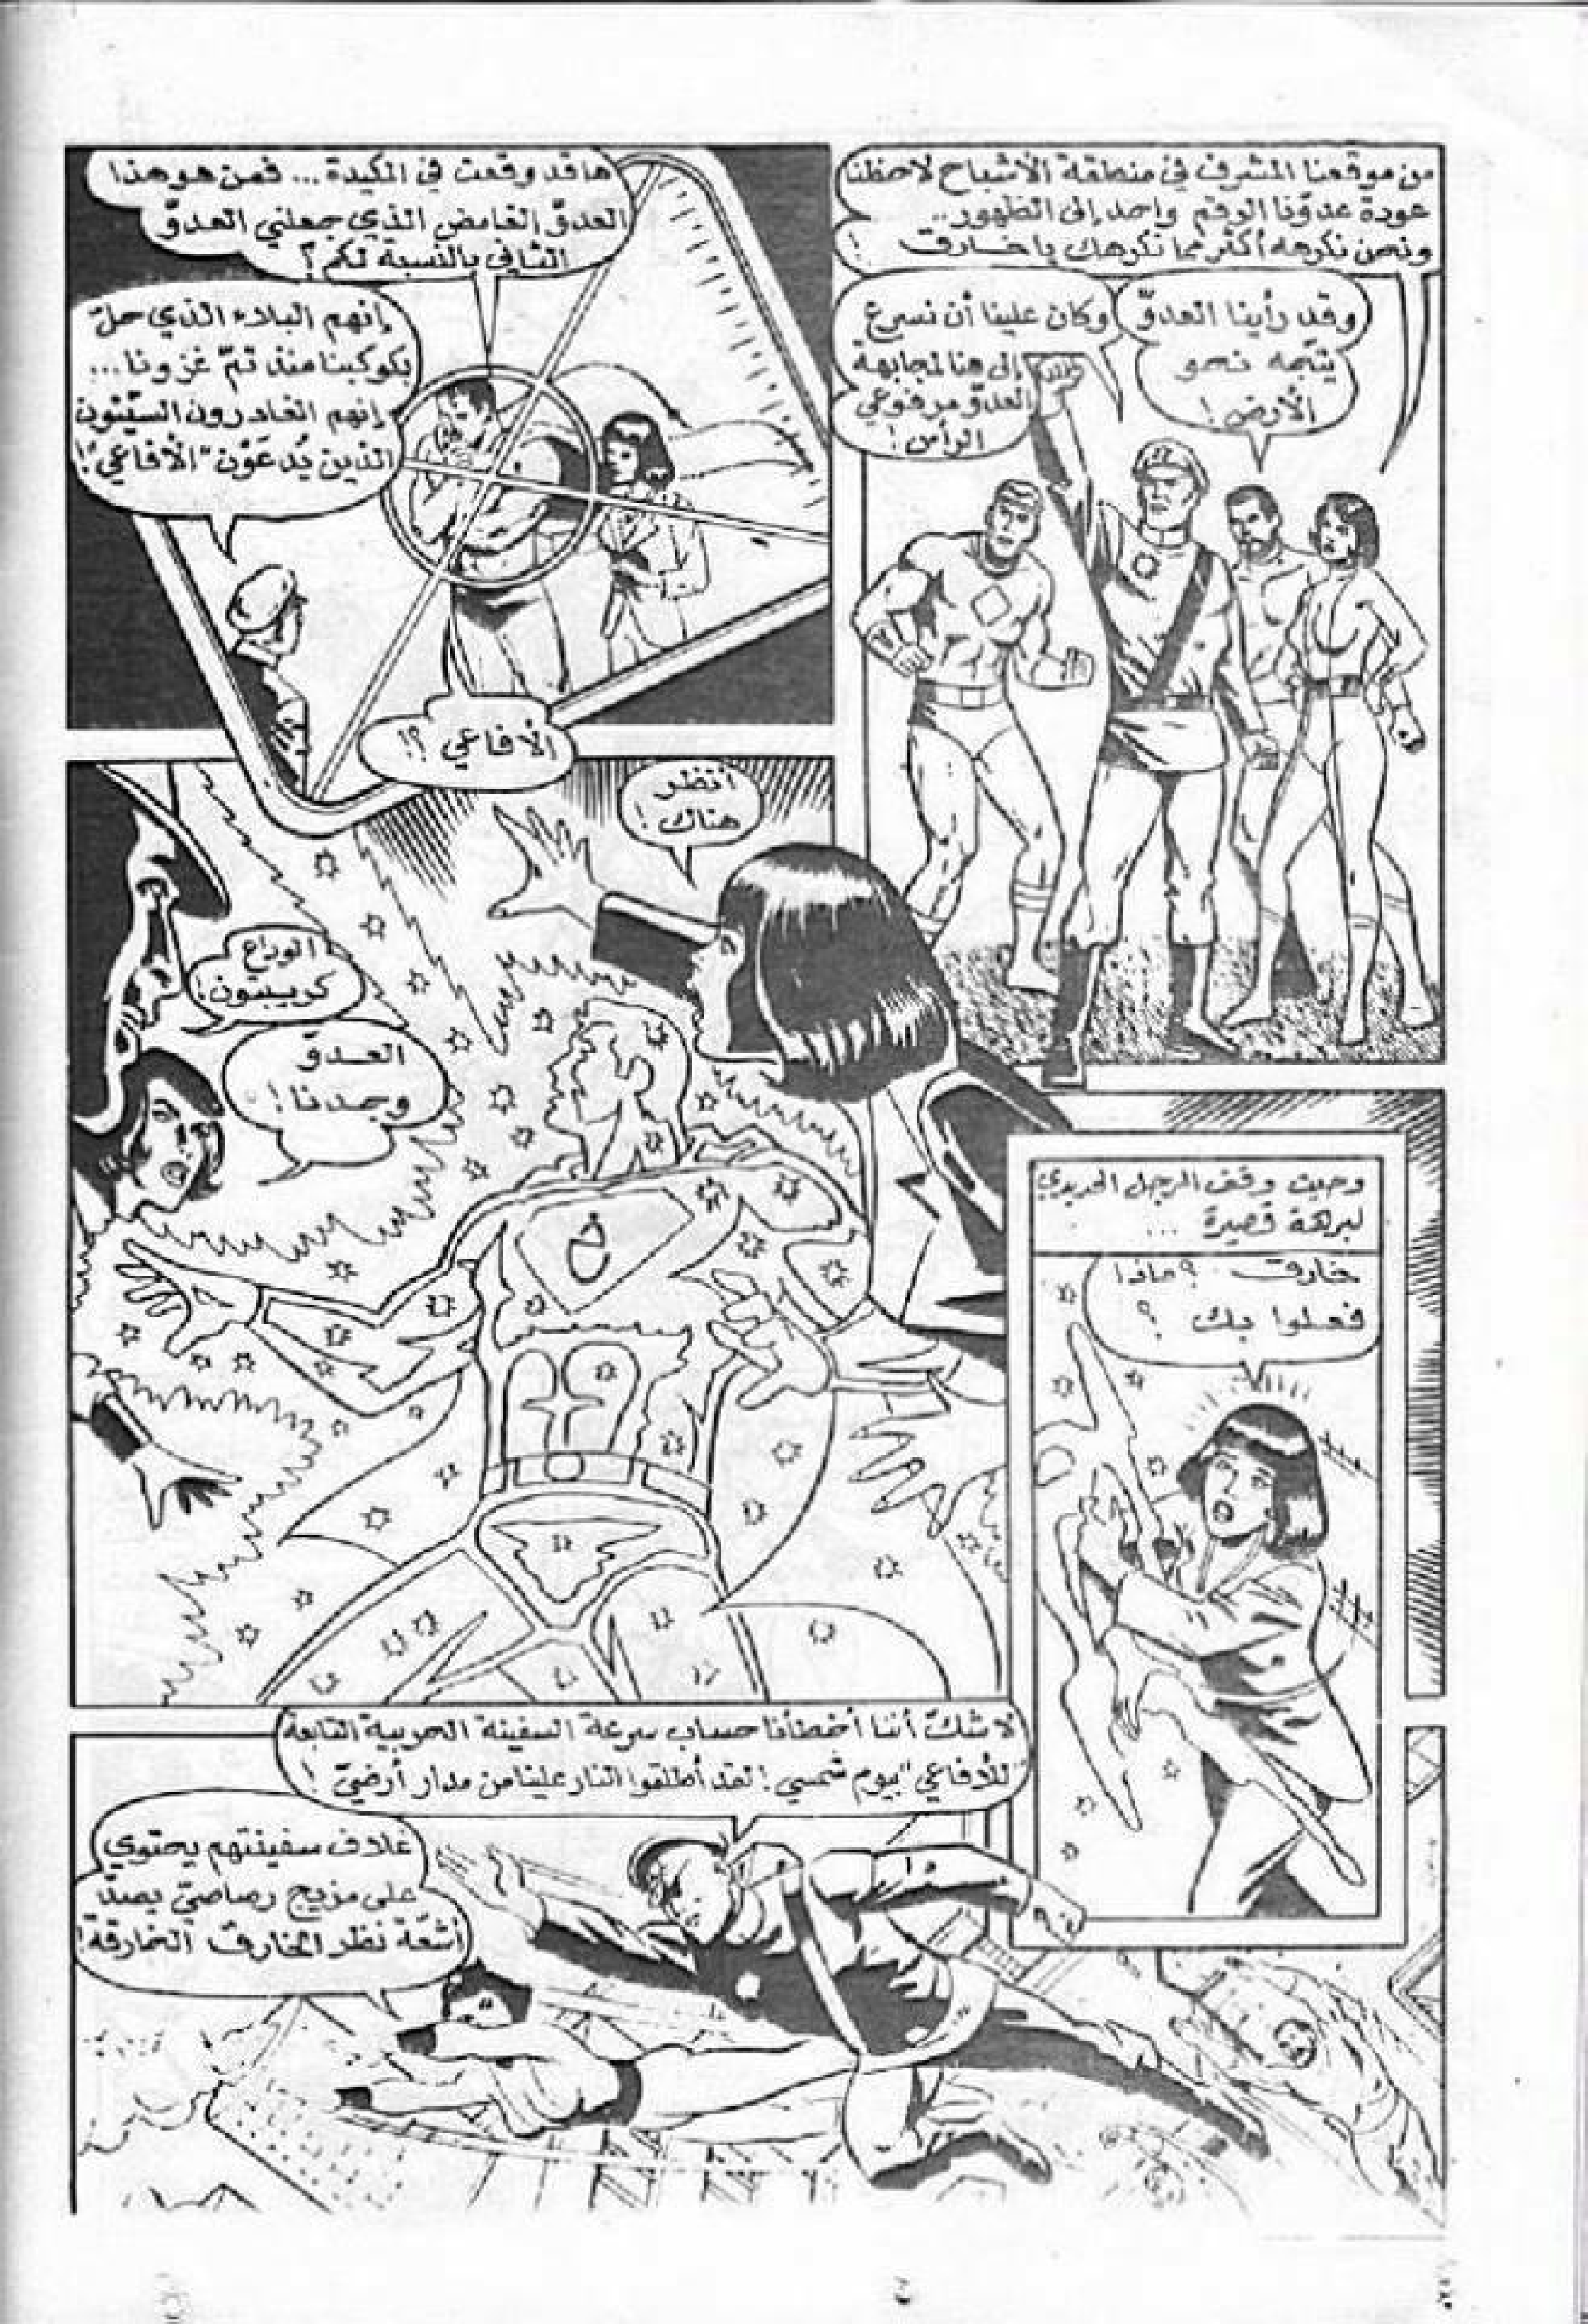 من موقعنا المشرف في منطقة الأشباح لاحظنا
عودة عدوّنا الرقم واحد إلى الظهور..
ونحن نكرهه أكثر مما نكرهك يا خارق !
وقد رأينا العدوّ
يتّجه نحو
الأرض !
وكان علينا أن نسرع
إلى هنا لمجابهة
العدوّ مرفوعي
الرأس !
ها قد وقعت في المكيدة... فمن هو هذا
العدوّ الغامض الذي جعلني العدوّ
الثاني بالنسبة لكم ؟
إنهم البلاء الذي حلّ
بكوكبنا منذ تمّ غزونا...
إنهم الغادرون السيّئون
الذين يُدعَوْن "الأفاعي"!
الأفاعي ؟!
أنتظر
هناك !
الوداع
كريبتون!
العدوّ
وجدنا !
وحيث وقف الرجل الحديدي
لبرهة قصيرة ...
خارق ؟ ماذا
فعلوا بك ؟
لا شكّ أننا أخطأنا حساب سرعة السفينة الحربية التابعة
"للأفاعي" بيوم شمسي ! لقد أطلقوا النار علينا من مدار أرضيّ !
غلاف سفينتهم يحتوي
على مزيج رصاصيّ يصدّ
أشعّة نظر الخارق الخارقة!